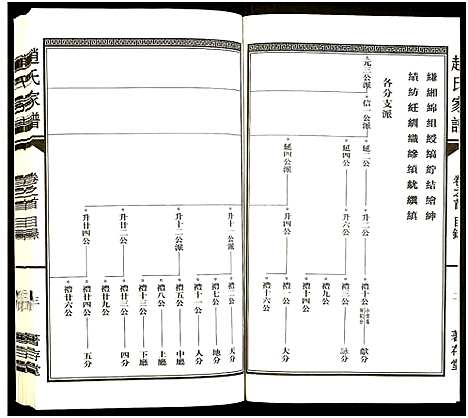 趙氏家譜
卷之首 目錄
著存堂
縑緗綿組綬縞紵結繪紳
績紡紝綱織縿績統纘縝
各分支派
元三公派
信一公派
延二公
延四公
延四公派
升二公
升三公
升十一公派
升十二公派
升廿二公
升廿四公
禮十公
禮三公
禮二公
禮十六公
禮一公
禮七公
禮十一公
禮五公
禮八公
禮十三公
禮廿三公
禮廿九公
禮廿四公
禮廿六公
獻分
詠分
大分
天分
地分
人分
中廳
上廳
下廳
四分
五分
趙氏家譜
卷之首 目錄
三
著存堂